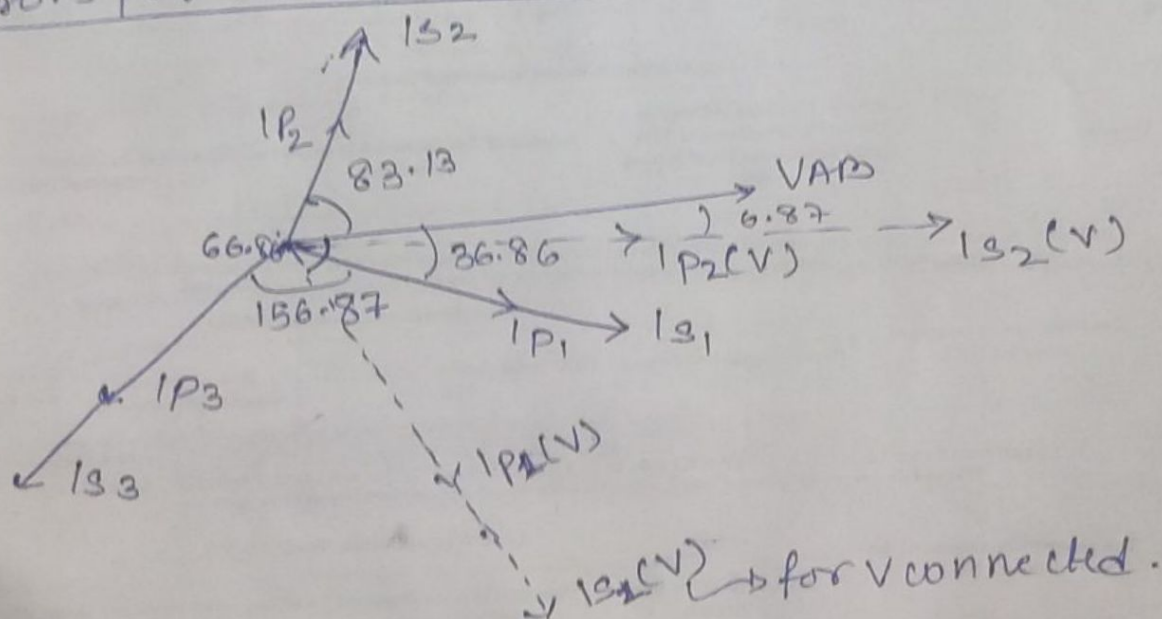 IS2
IP2
83.13
VAB
6.87
36.86
IP2(V)
IS2(V)
156.87
IP1
IS1
IP3
IS3
IP1(V)
IS1(V) → for V connected.